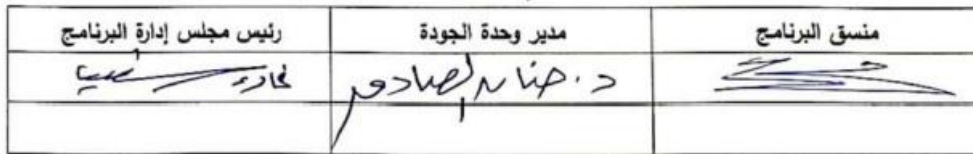 منسق البرنامج مدير وحدة الجودة رئيس مجلس إدارة البرنامج
د. حنان الصادق